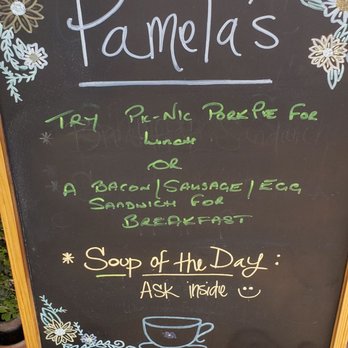 Pamela's
TRY PIC-NIC PORK PIE FOR
LUNCH
OR
A BACON/SAUSAGE/EGG
SANDWICH FOR
BREAKFAST
* Soup of the Day :
ASK inside ☺